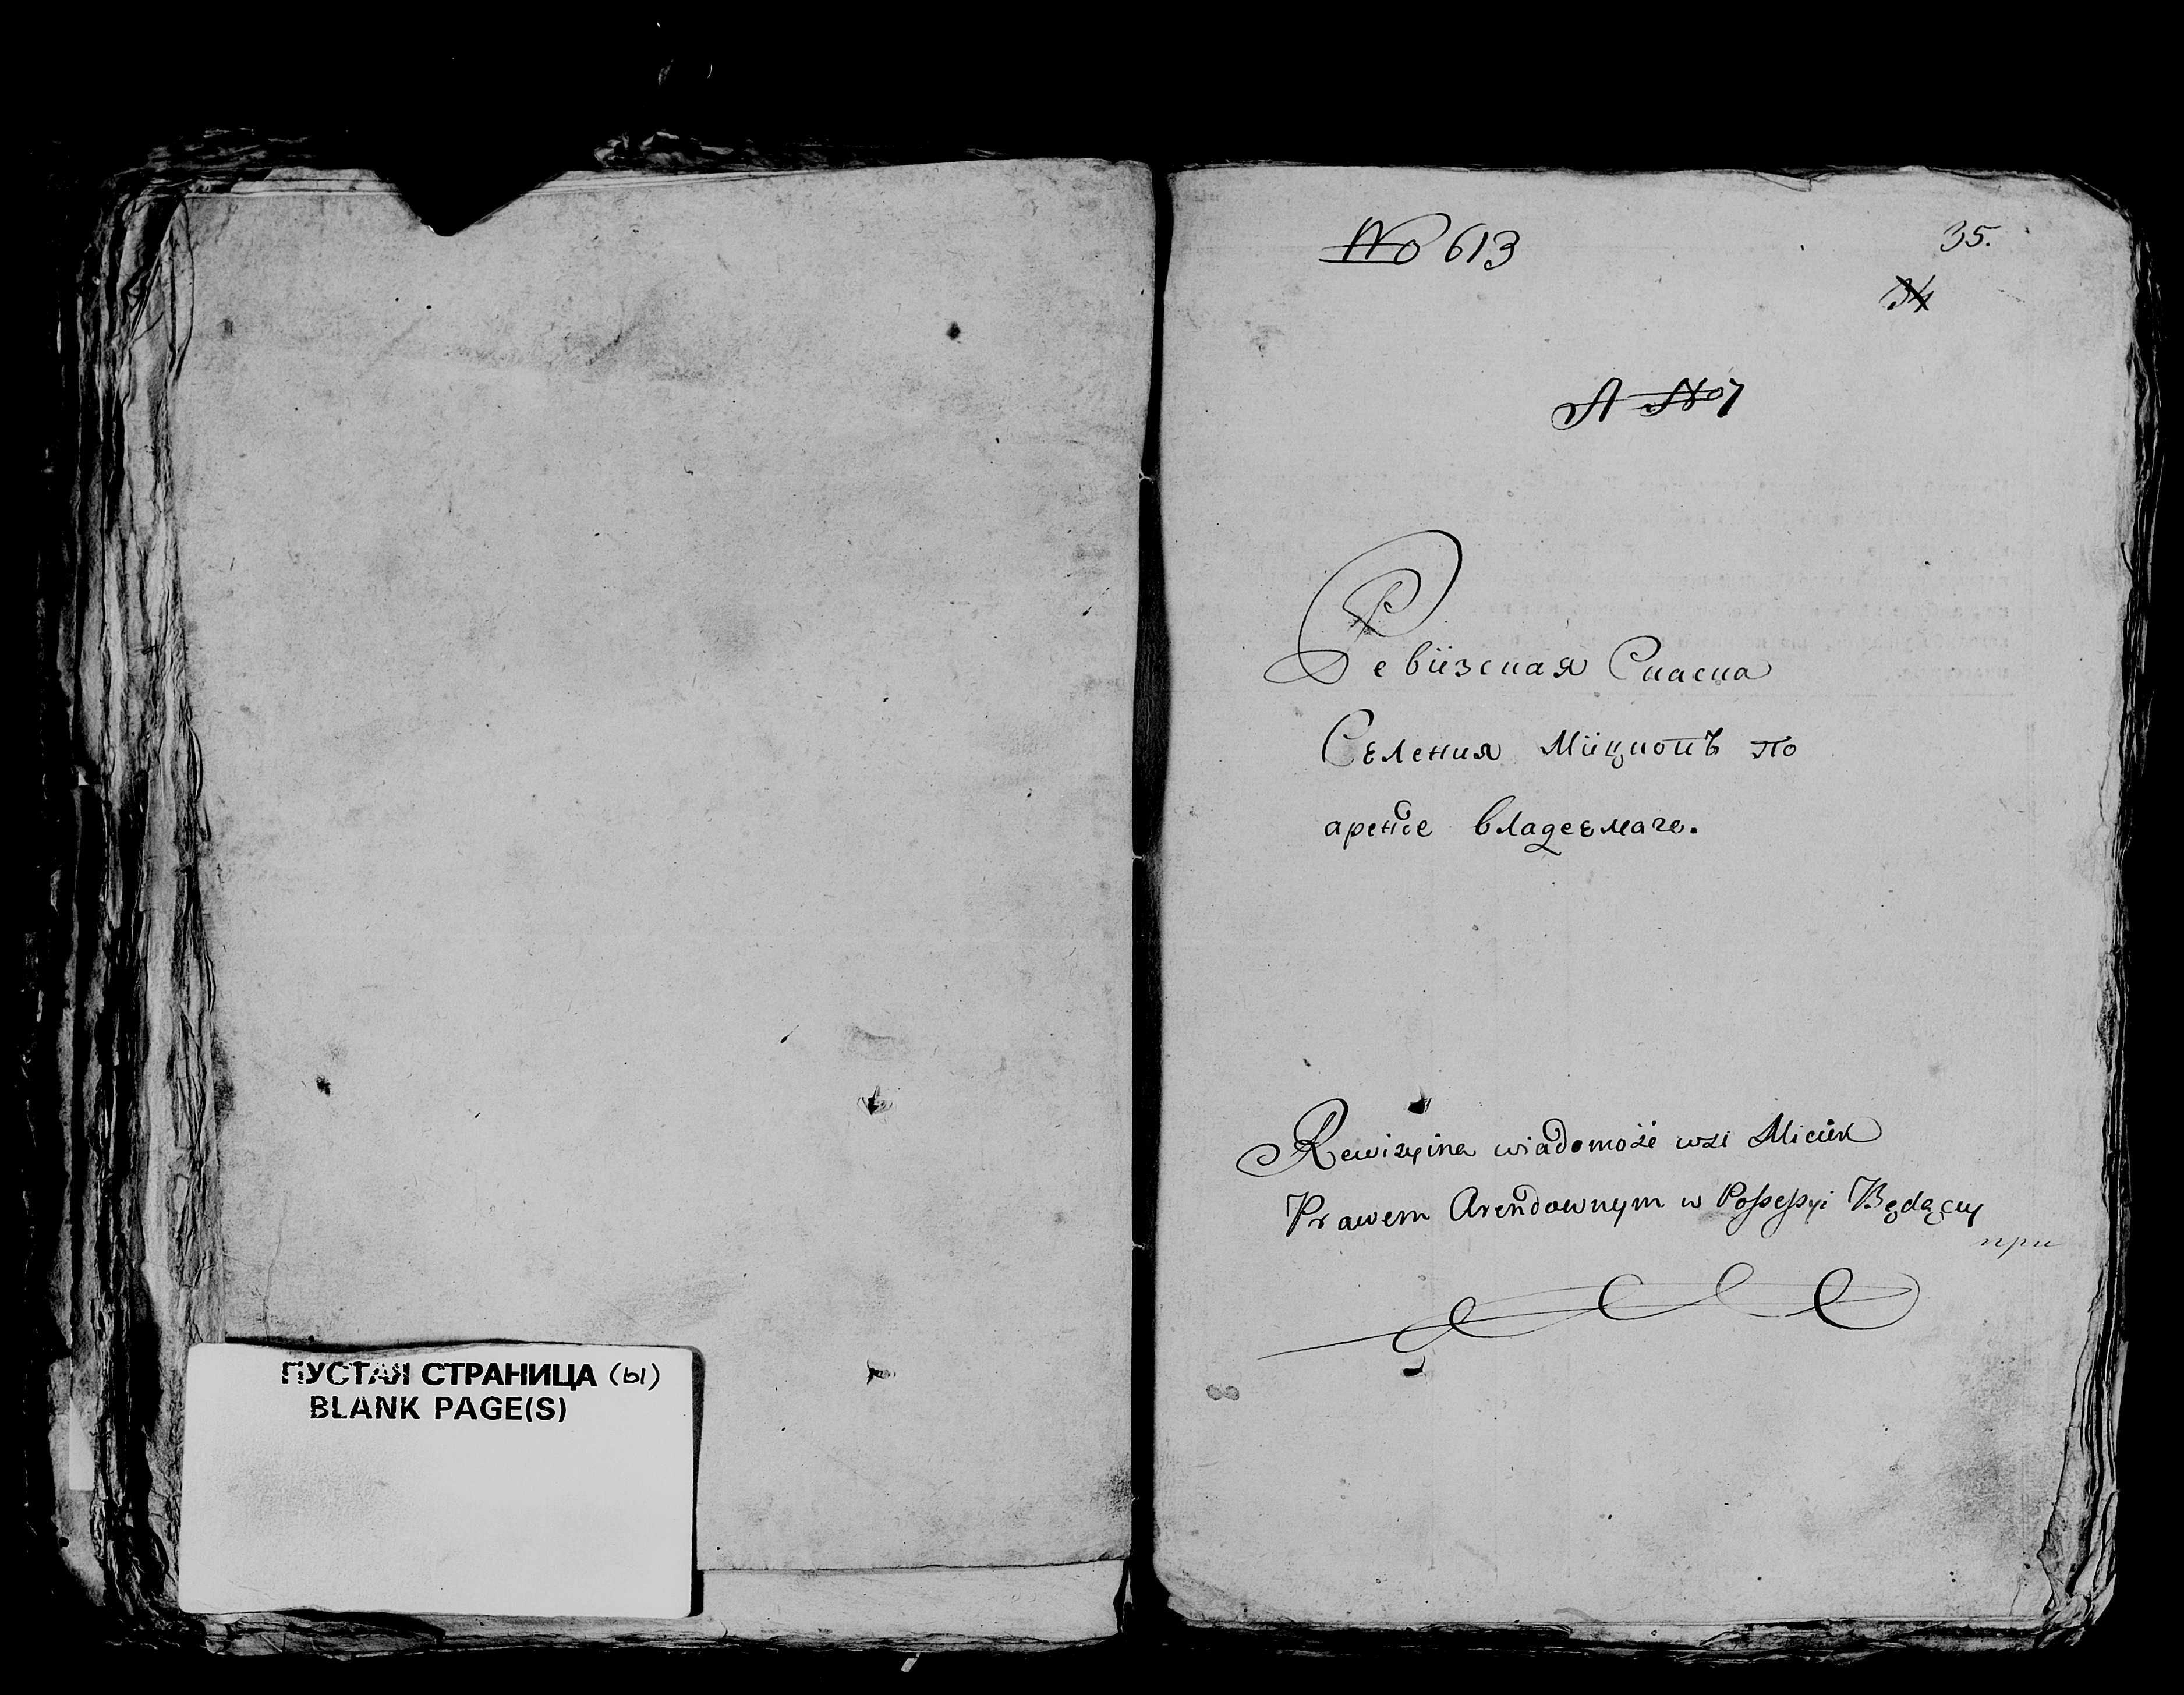 ПУСТАЯ СТРАНИЦА (ы)
BLANK PAGE(S)
No 613
35.
34
A No 7
Ревизская Скаска
Селения Мицкопъ по
аренде владеемаго.
Rewizyina wiadomość wsi Micuk
Prawem Arendownym w Possessyi Będący
при